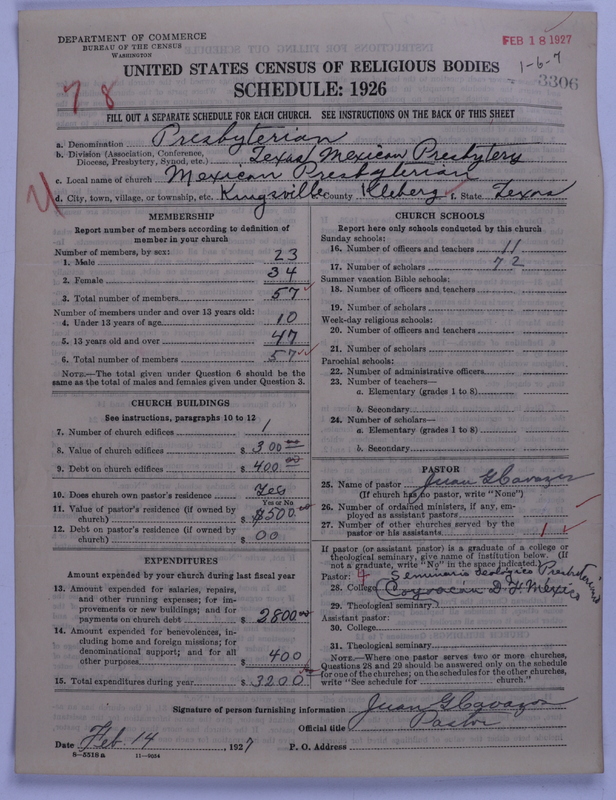 DEPARTMENT OF COMMERCE
BUREAU OF THE CENSUS
WASHINGTON
FEB 18 1927
1-6-7
3306
UNITED STATES CENSUS OF RELIGIOUS BODIES
SCHEDULE: 1926
7 8
FILL OUT A SEPARATE SCHEDULE FOR EACH CHURCH. SEE INSTRUCTIONS ON THE BACK OF THIS SHEET
a. Denomination Presbyterian
b. Division (Association, Conference, Diocese, Presbytery, Synod, etc.) Texas Mexican Presbytery
c. Local name of church Mexican Presbyterian
d. City, town, village, or township, etc. Kingsville e. County Kleberg f. State Texas
MEMBERSHIP
Report number of members according to definition of
member in your church
Number of members, by sex:
1. Male 23
2. Female 34
3. Total number of members 57
Number of members under and over 13 years old:
4. Under 13 years of age 10
5. 13 years old and over 47
6. Total number of members 57
NOTE.—The total given under Question 6 should be the
same as the total of males and females given under Question 3.
CHURCH BUILDINGS
See instructions, paragraphs 10 to 12
7. Number of church edifices 1
8. Value of church edifices $ 300 00
9. Debt on church edifices $ 400 00
10. Does church own pastor's residence Yes
Yes or No
11. Value of pastor's residence (if owned by
church) $ $500 00
12. Debt on pastor's residence (if owned by
church) $ 00
EXPENDITURES
Amount expended by your church during last fiscal year
13. Amount expended for salaries, repairs,
and other running expenses; for im-
provements or new buildings; and for
payments on church debt $ 2800 00
14. Amount expended for benevolences, in-
cluding home and foreign missions; for
denominational support; and for all
other purposes $ 400
15. Total expenditures during year $ 3200 00
CHURCH SCHOOLS
Report here only schools conducted by this church
Sunday schools:
16. Number of officers and teachers 11
17. Number of scholars 72
Summer vacation Bible schools:
18. Number of officers and teachers
19. Number of scholars
Week-day religious schools:
20. Number of officers and teachers
21. Number of scholars
Parochial schools:
22. Number of administrative officers
23. Number of teachers—
a. Elementary (grades 1 to 8)
b. Secondary
24. Number of scholars—
a. Elementary (grades 1 to 8)
b. Secondary
PASTOR
25. Name of pastor Juan G Cavazos
(If church has no pastor, write "None")
26. Number of ordained ministers, if any, em-
ployed as assistant pastors
27. Number of other churches served by the
pastor or his assistants 1
If pastor (or assistant pastor) is a graduate of a college or
theological seminary, give name of institution below. (If
not a graduate, write "No" in the space indicated.)
Pastor: Seminario teologico Presbiteriano
28. College Coyoacan D. F. Mexico
29. Theological seminary
Assistant pastor:
30. College
31. Theological seminary
NOTE.—Where one pastor serves two or more churches,
Questions 28 and 29 should be answered only on the schedule
for one of the churches; on the schedules for the other churches,
write "See schedule for church."
Signature of person furnishing information Juan G Cavazos
Official title Pastor
Date Feb 14, 1927 P. O. Address
8—5518a 11—9624